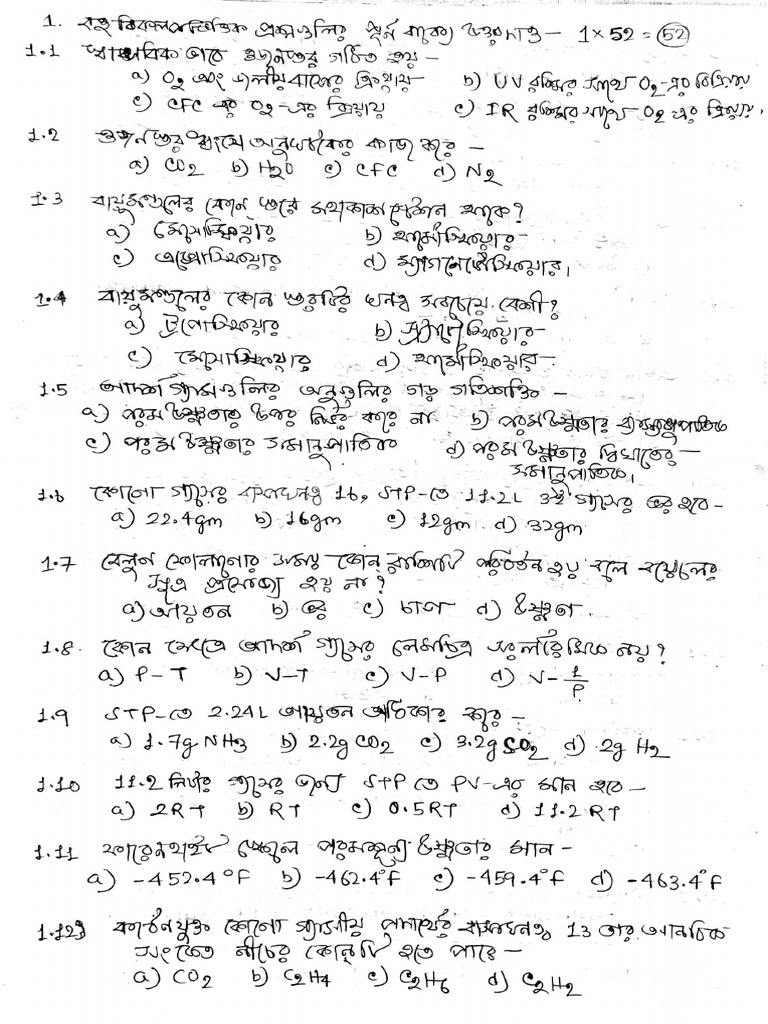 1. বহু বিকল্পভিত্তিক প্রশ্নগুলির পূর্ন বাক্যে উত্তর দাও - 1 × 52 = 52
1.1 স্বাভাবিক ভাবে ওজনস্তর গঠিত হয় -
a) O2 এবং জলীয় বাষ্পের ক্রিয়ায় b) UV রশ্মির সাথে O2-এর বিক্রিয়ায়
c) CFC এর O2-এর ক্রিয়ায় c) IR রশ্মির সাথে O2 এর ক্রিয়ায়,
1.2 ওজনস্তর ধ্বংসে অনুঘটকের কাজ করে -
a) CO2 b) H2O c) CFC d) N2
1.3 বায়ুমণ্ডলের কোন স্তরে মহাকাশ স্টেশন থাকে?
a) মেসোস্ফিয়ার b) থার্মোস্ফিয়ার
c) এক্সোস্ফিয়ার d) ম্যাগনেটোস্ফিয়ার।
1.4 বায়ুমণ্ডলের কোন স্তরটির ঘনত্ব সবচেয়ে বেশী?
a) ট্রপোস্ফিয়ার b) স্ট্র্যাটোস্ফিয়ার
c) মেসোস্ফিয়ার d) থার্মোস্ফিয়ার
1.5 আদর্শ গ্যাসগুলির অনুগুলির গড় গতিশক্তি -
a) পরম উষ্ণতার উপর নির্ভর করে না b) পরম উষ্ণতার ব্যস্তানুপাতিক
c) পরম উষ্ণতার সমানুপাতিক d) পরম উষ্ণতার দ্বিঘাতের
সমানুপাতিক।
1.6 কোনো গ্যাসের বাষ্পঘনত্ব 16, STP-তে 11.2L ঐ গ্যাসের ভর হবে -
a) 22.4gm b) 16gm c) 12gm d) 32gm
1.7 বেলুন ফোলানোর সময় কোন রাশিটি পরিবর্তন হয় বলে বয়েলের
সূত্র প্রযোজ্য হয় না?
a) আয়তন b) ভর c) চাপ d) উষ্ণতা.
1.8. কোন ক্ষেত্রে আদর্শ গ্যাসের লেখচিত্র সরলরৈখিক নয়?
a) P-T b) V-T c) V-P d) V-1/P
1.9 STP-তে 2.24L আয়তন অধিকার করে -
a) 1.7g NH3 b) 2.2g CO2 c) 3.2g SO2 d) 2g H2
1.10 11.2 লিটার গ্যাসের জন্য STP তে PV-এর মান হবে -
a) 2RT b) RT c) 0.5RT d) 11.2 RT
1.11 ফারেনহাইট স্কেলে পরমশূন্য উষ্ণতার মান -
a) -452.4°F b) -462.4°F c) -459.4°F d) -463.4°F
1.12 কার্বনযুক্ত কোনো গ্যাসীয় পদার্থের বাষ্পঘনত্ব 13 তার আনবিক
সংকেত নীচের কোনটি হতে পারে -
a) CO2 b) C2H4 c) C2H6 d) C2H2